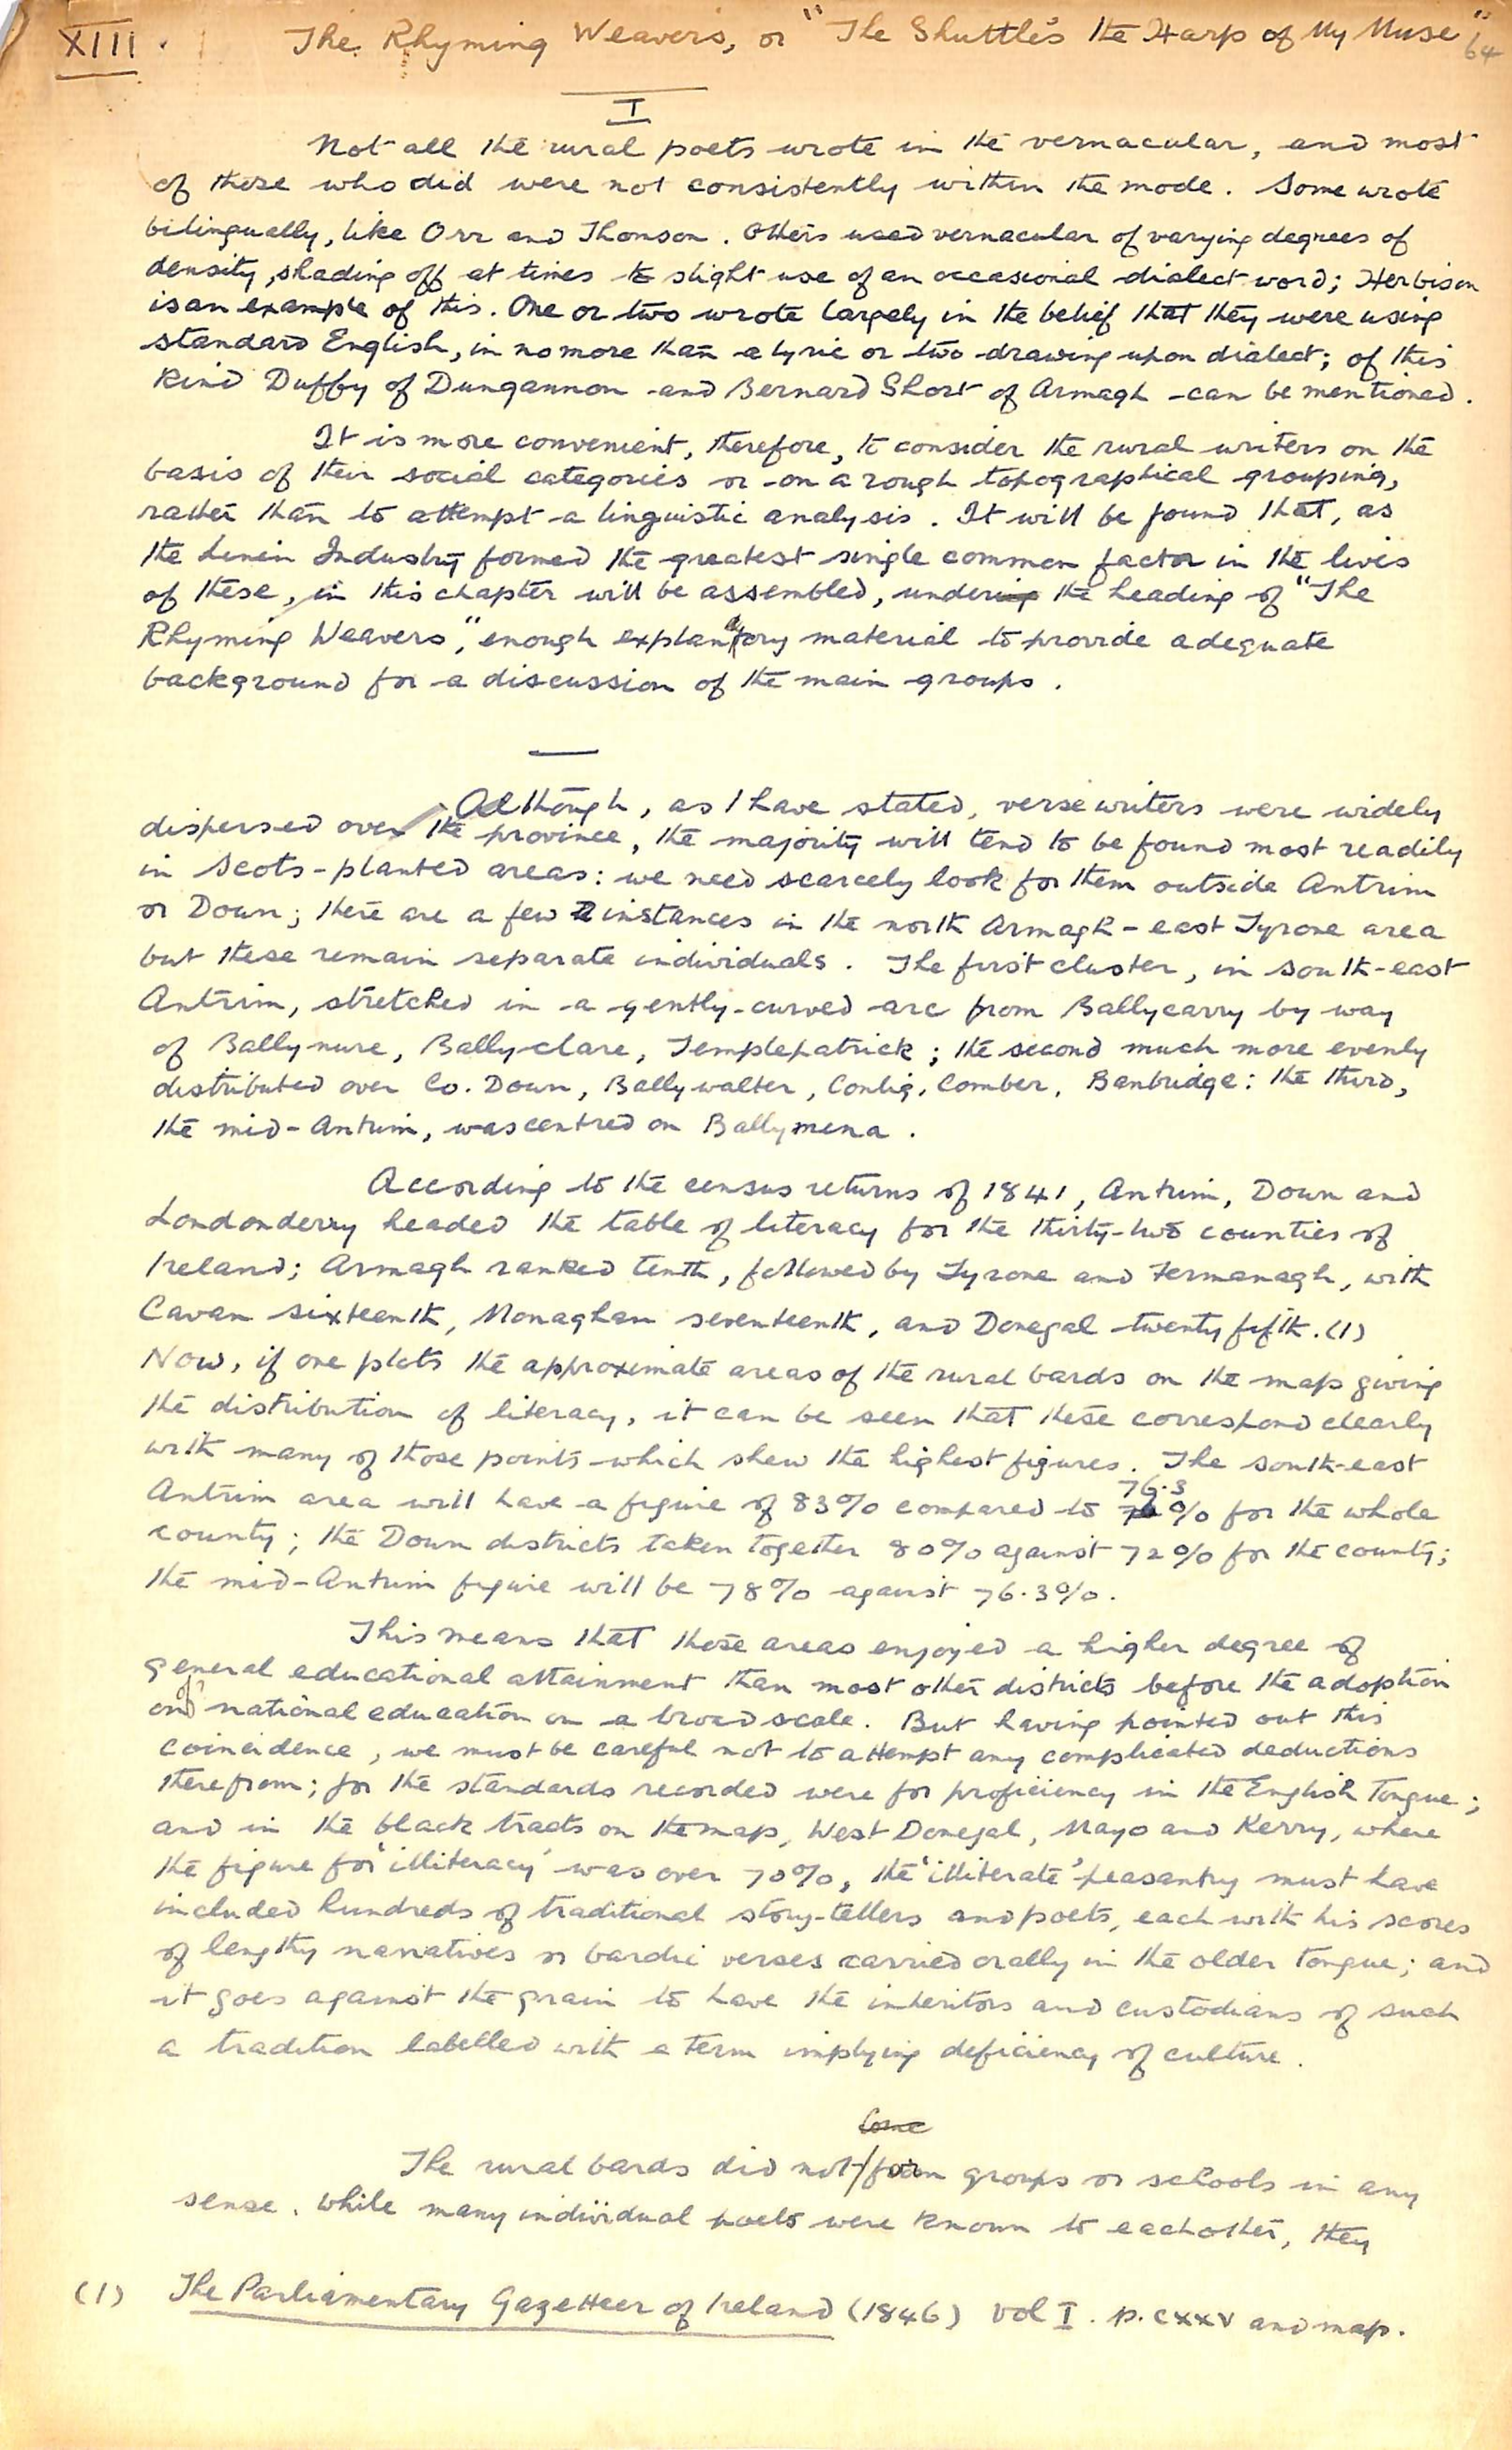 XIII. The Rhyming Weavers, or "The Shuttle's the Harp of My Muse" 64
I
Not all the rural poets wrote in the vernacular, and most
of those who did were not consistently within the mode. Some wrote
bilingually, like Orr and Thomson. Others used vernacular of varying degrees of
density, shading off at times to slight use of an occasional dialect word; Herbison
is an example of this. One or two wrote largely in the belief that they were using
standard English, in no more than a lyric or two drawing upon dialect; of this
kind Duffy of Dungannon and Bernard Short of Armagh can be mentioned.
It is more convenient, therefore, to consider the rural writers on the
basis of their social categories or on a rough topographical grouping,
rather than to attempt a linguistic analysis. It will be found that, as
the Linen Industry formed the greatest single common factor in the lives
of these, in this chapter will be assembled, undering the heading of "The
Rhyming Weavers", enough explanatory material to provide adequate
background for a discussion of the main groups.
Although, as I have stated, verse writers were widely
dispersed over the province, the majority will tend to be found most readily
in Scots-planted areas: we need scarcely look for them outside Antrim
or Down; there are a few instances in the north Armagh - east Tyrone area
but these remain separate individuals. The first cluster, in south-east
Antrim, stretched in a gently-curved arc from Ballycarry by way
of Ballynure, Ballyclare, Templepatrick; the second much more evenly
distributed over Co. Down, Ballywalter, Conlig, Comber, Banbridge: the third,
the mid-Antrim, was centred on Ballymena.
According to the census returns of 1841, Antrim, Down and
Londonderry headed the table of literacy for the thirty-two counties of
Ireland; Armagh ranked tenth, followed by Tyrone and Fermanagh, with
Cavan sixteenth, Monaghan seventeenth, and Donegal twenty fifth. (1)
Now, if one plots the approximate areas of the rural bards on the map giving
the distribution of literacy, it can be seen that these correspond clearly
with many of those points which shew the highest figures. The south-east
76.3
Antrim area will have a figure of 83% compared to % for the whole
county; the Down districts taken together 80% against 72% for the county;
the mid-Antrim figure will be 78% against 76.3%.
This means that those areas enjoyed a higher degree of
general educational attainment than most other districts before the adoption
of
on national education on a broad scale. But having pointed out this
coincidence, we must be careful not to attempt any complicated deductions
therefrom; for the standards recorded were for proficiency in the English Tongue;
and in the black tracts on the map, West Donegal, Mayo and Kerry, where
the figure for 'illiteracy' was over 70%, the 'illiterate' peasantry must have
included hundreds of traditional story-tellers and poets, each with his scores
of lengthy narratives or bardic verses carried orally in the older tongue; and
it goes against the grain to have the inheritors and custodians of such
a tradition labelled with a term implying deficiency of culture.
The rural bards did not form groups or schools in any
sense. While many individual poets were known to each other, they
(1) The Parliamentary Gazetteer of Ireland (1846) Vol I. p. cxxv and map.